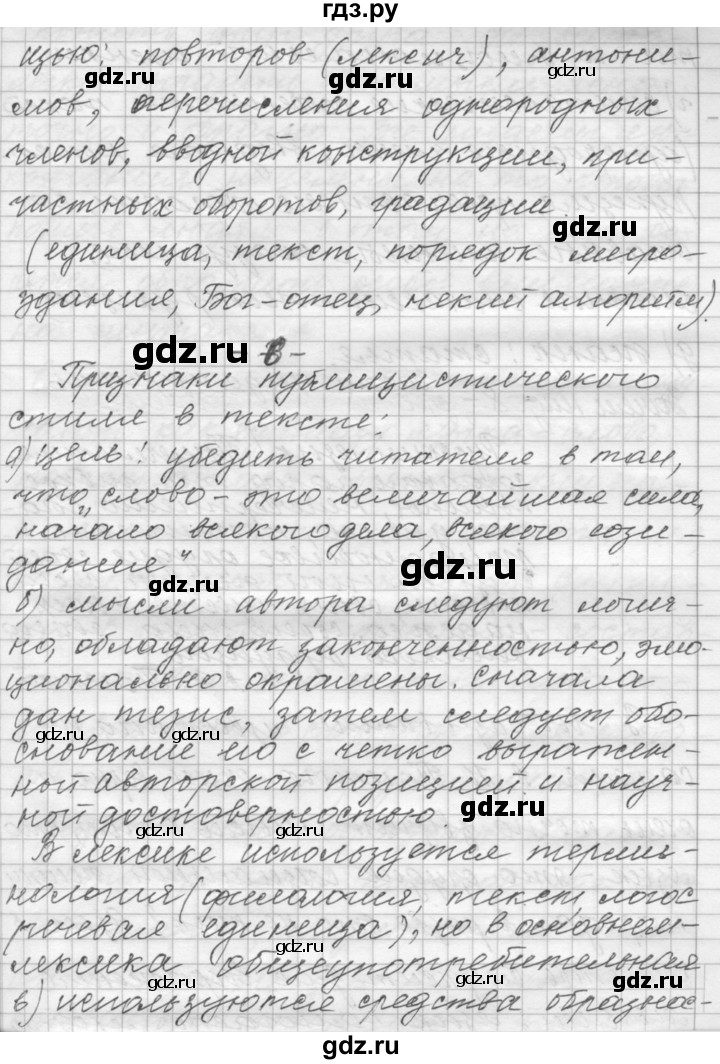 гдз.ру
щью: повторов (лексич), антони-
мов, перечисления однородных
членов, вводной конструкции, при-
частных оборотов, градации
(единица, текст, порядок миро-
здания, Бог-отец, некий алгоритм).
-6-
Признаки публицистического
стиля в тексте:
а) цель: убедить читателя в том,
что „слово - это величайшая сила,
начало всякого дела, всякого сози-
дания"
б) мысли автора следуют логич-
но, обладают законченностью, эмо-
ционально окрашены. Сначала
дан тезис, затем следует обо-
снование его с четко выражен-
ной авторской позицией и науч-
ной достоверностью.
В лексике используется терми-
нология (филология, текст, логос
речевая единица), но в основном-
лексика общеупотребительная
в) используются средства образнос-
gdz.ru